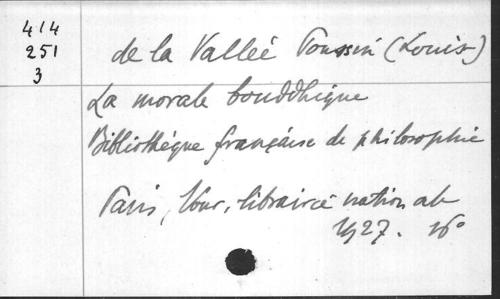 414
251
3
de la Valleé Poussin (Louis)
La morale bouddhique
Bibliothéque française de philosophie
Paris, Nouv. librairie national
1927. 16°